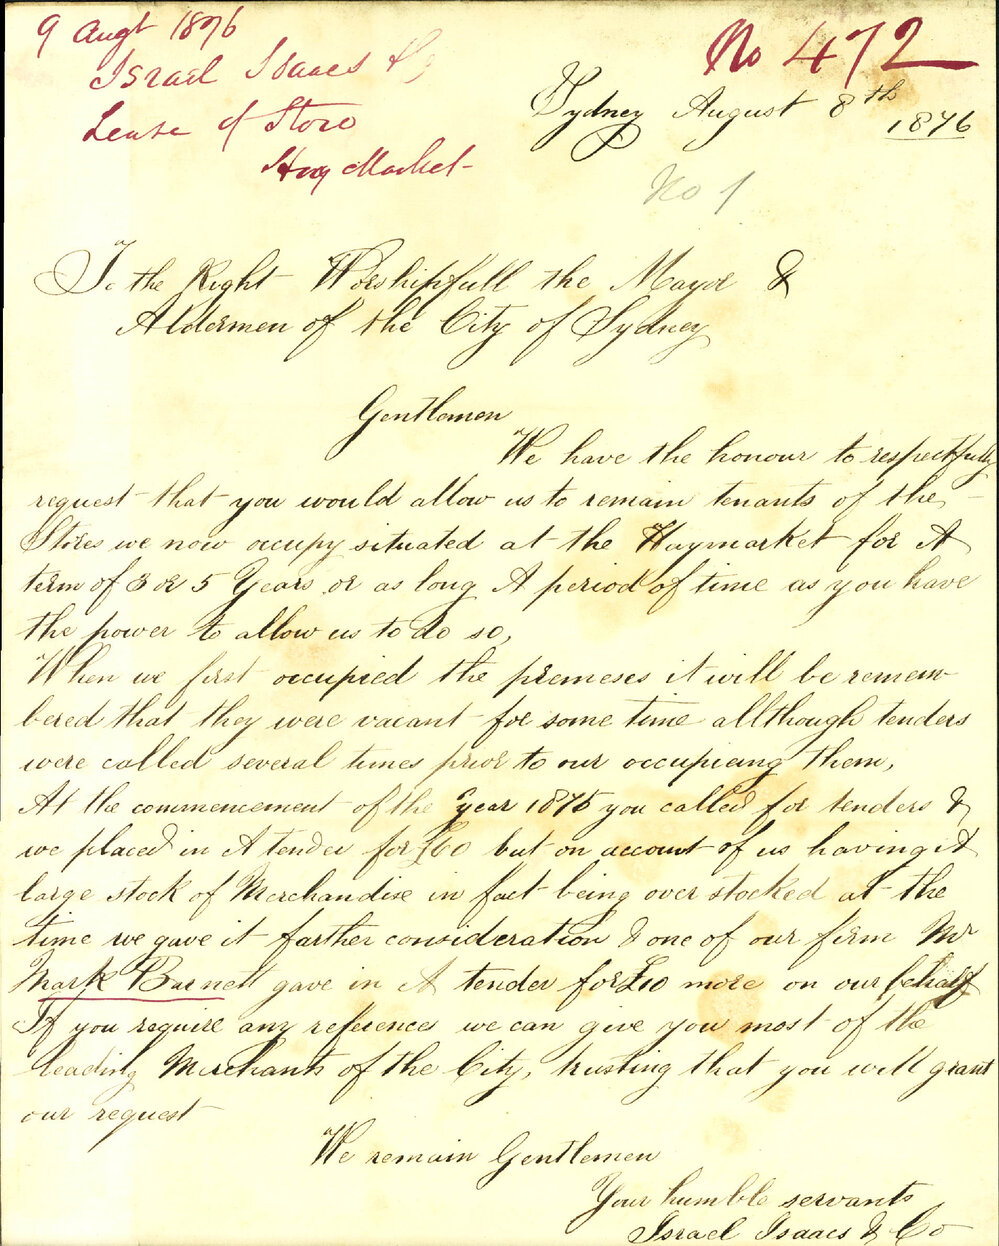 9 Augt 1876
Israel Isaacs &
Lease of Store
Hay Market
No 472
Sydney August 8th
1876
No 1
To the Right Worshipfull the Mayor &
Aldermen of the City of Sydney
Gentlemen
We have the honour to respectfully
request that you would allow us to remain tenants of the
Stores we now occupy situated at the Haymarket for A
term of 3 or 5 Years or as long A period of time as you have
the power to allow us to do so,
When we first occupied the premeses it will be remem
bered that they were vacant for some time allthough tenders
were called several times prior to our occupieng them,
At the commencement of the year 1875 you called for tenders &
we placed in A tender for £60 but on account of us having A
large stock of Merchandise in fact being over stocked at the
time we gave it farther consideration & one of our firm Mr
Mark Barnett gave in A tender for £10 more on our behalf
If you require any reference we can give you most of the
leading Merchants of the City, trusting that you will grant
our request
We remain Gentlemen
Your humble servants
Israel Isaacs & Co